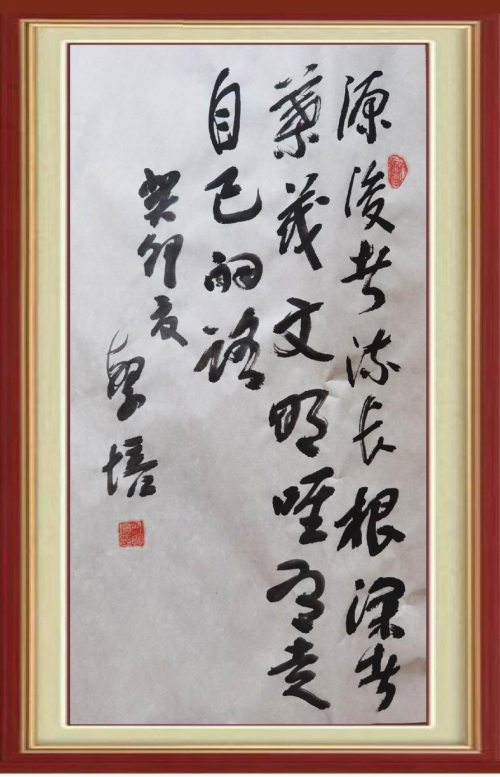 源浚者流长根深者
葉茂文明唯有走
自己的路
癸卯夏
学培